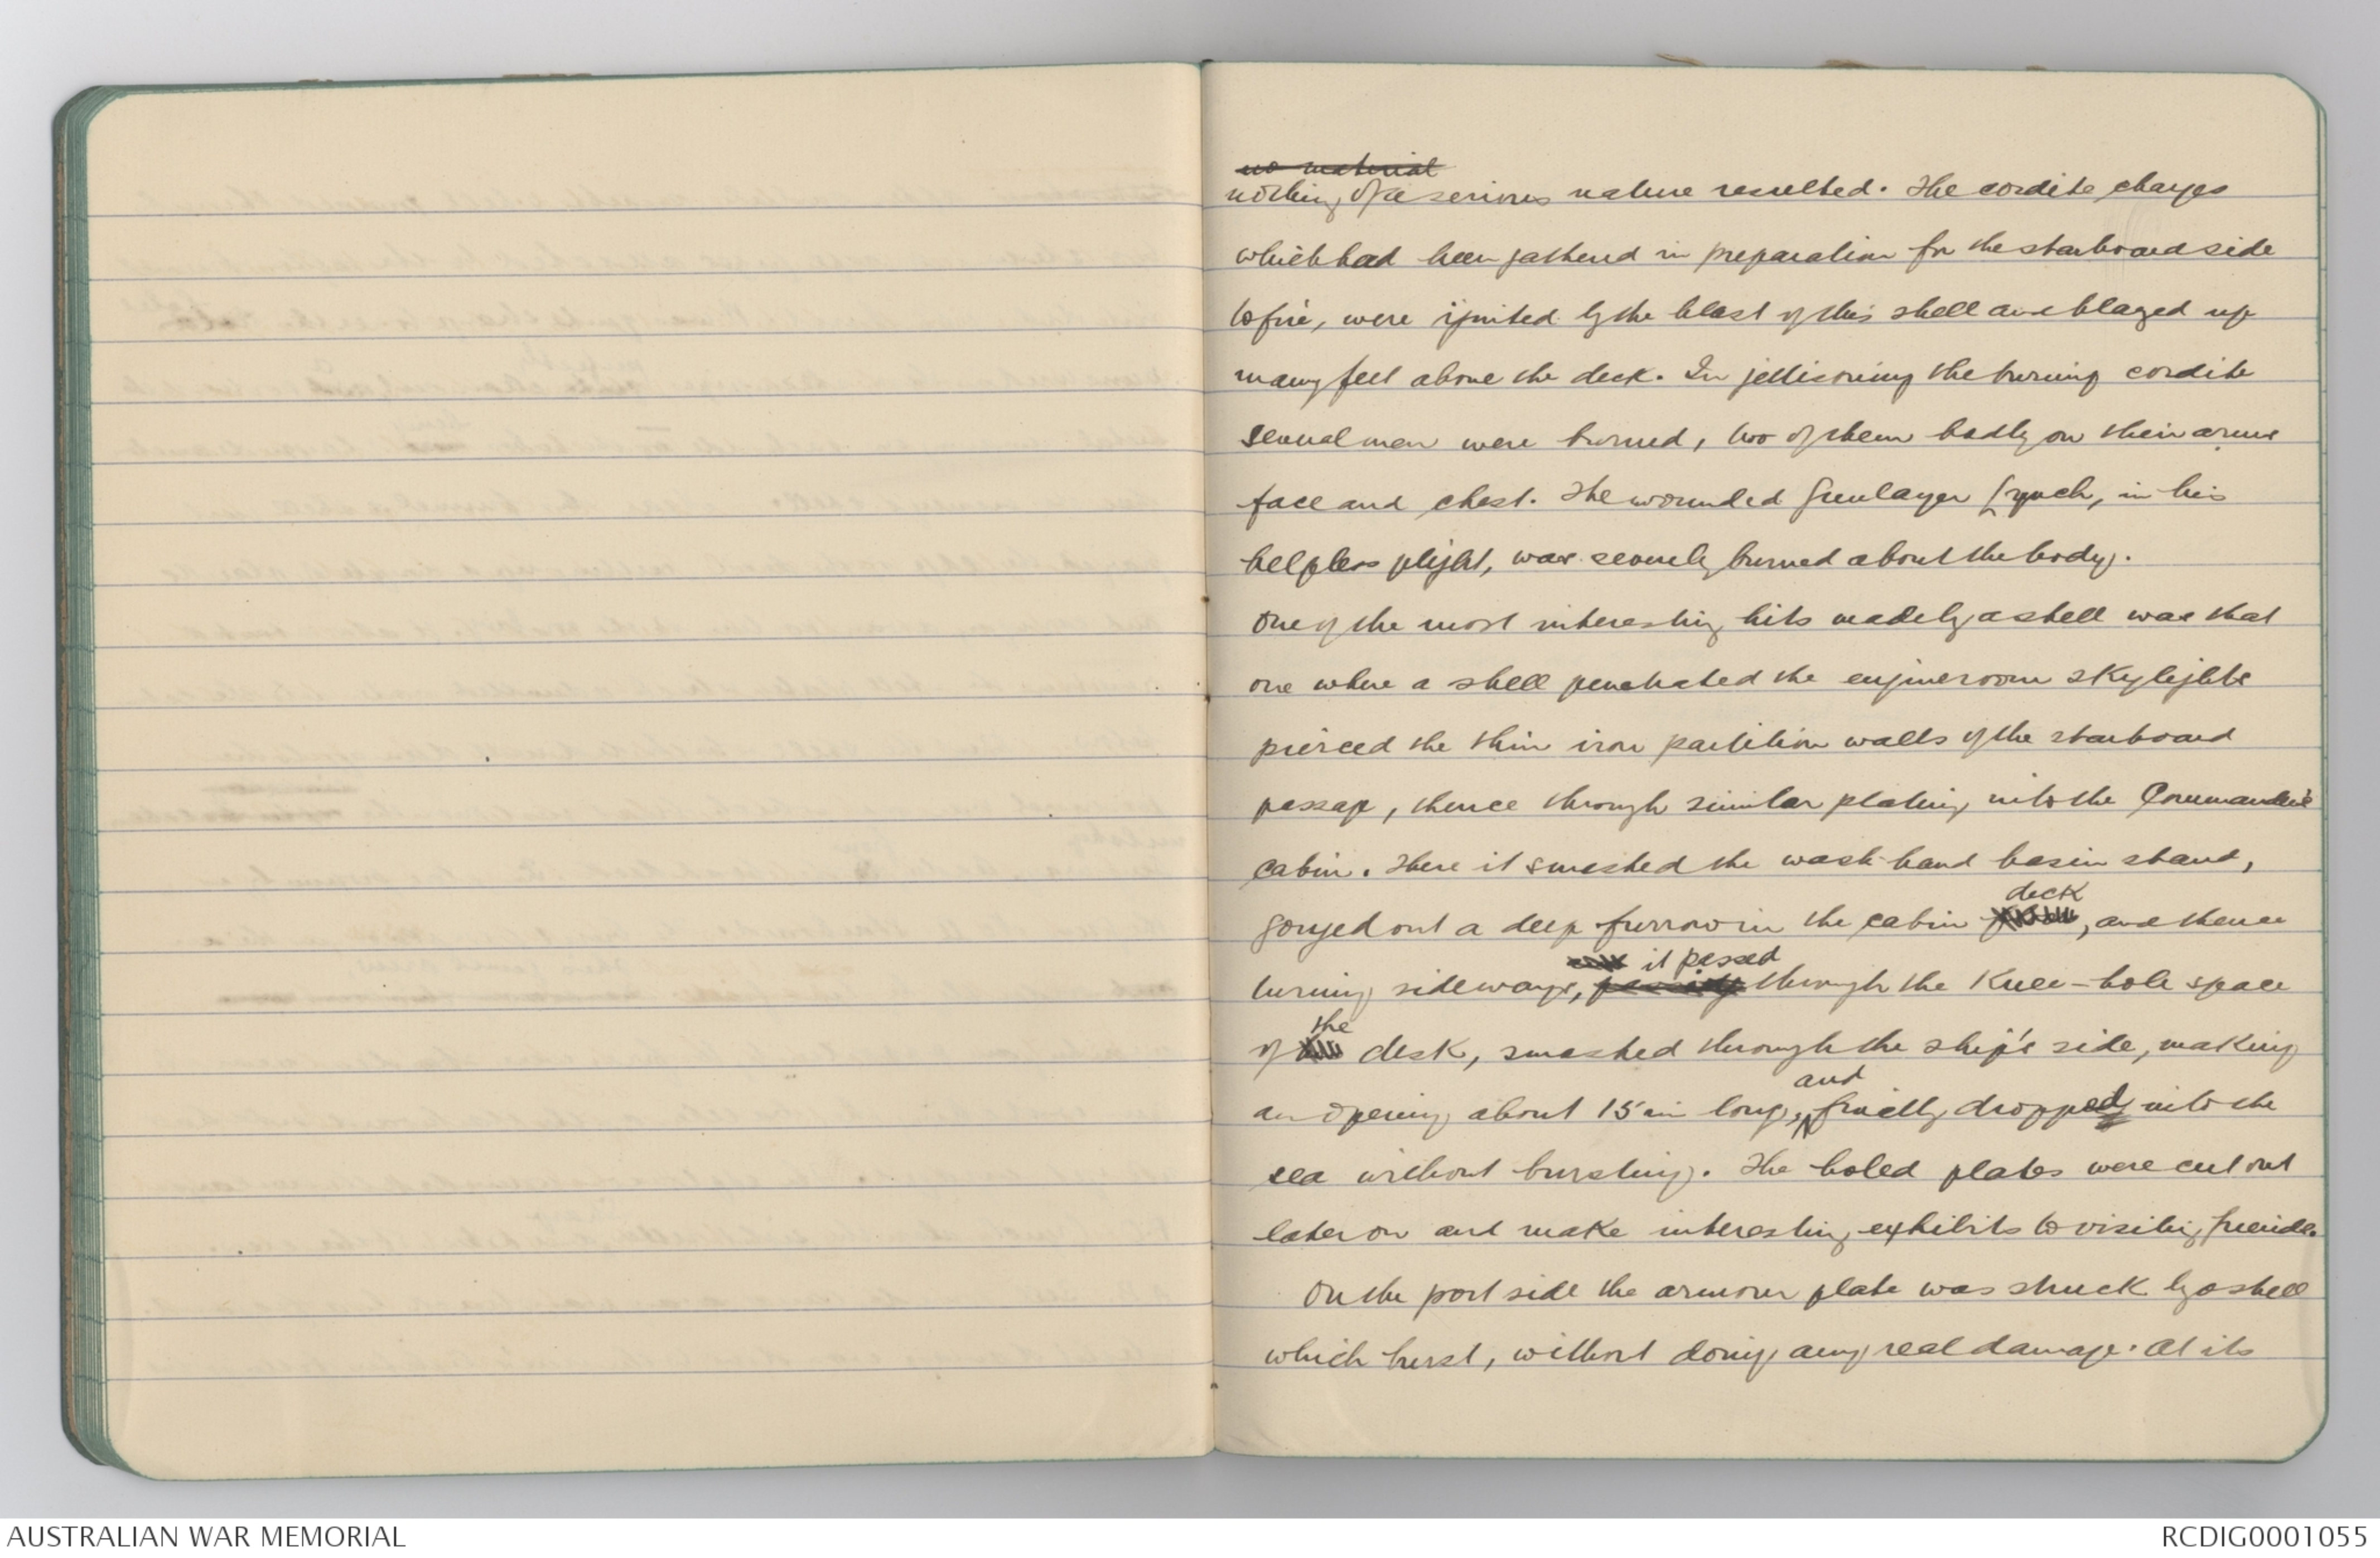 no material
nothing of a serious nature resulted. The cordite charges
which had been gathered in preparation for the starboard side
to fire, were ignited by the blast of this shell and blazed up
many feet above the deck. In jettisoning the burning cordite
several men were burned, two of them badly on their arms
face and chest. The wounded Gunlayer Lynch, in his
helpless plight, was severely burned about the body.
One of the most interesting hits made by a shell was that
one where a shell penetrated the engineroom skylights
pierced the thin iron partition walls of the starboard
passage, thence through similar plating into the Commander's
cabin. There it smashed the wash-hand basin stand,
deck
gouged out a deep furrow in the cabin , and thence
it passed
turning sideways, passing through the knee-hole space
the
of desk, smashed through the ship's side, making
and
an opening about 15 in long, finally dropped into the
sea without bursting. The holed plates were cut out
later on and make interesting exhibits to visiting friends.
On the port side the armour plate was struck by a shell
which burst, without doing any real damage. At its
AUSTRALIAN WAR MEMORIAL
RCDIG0001055